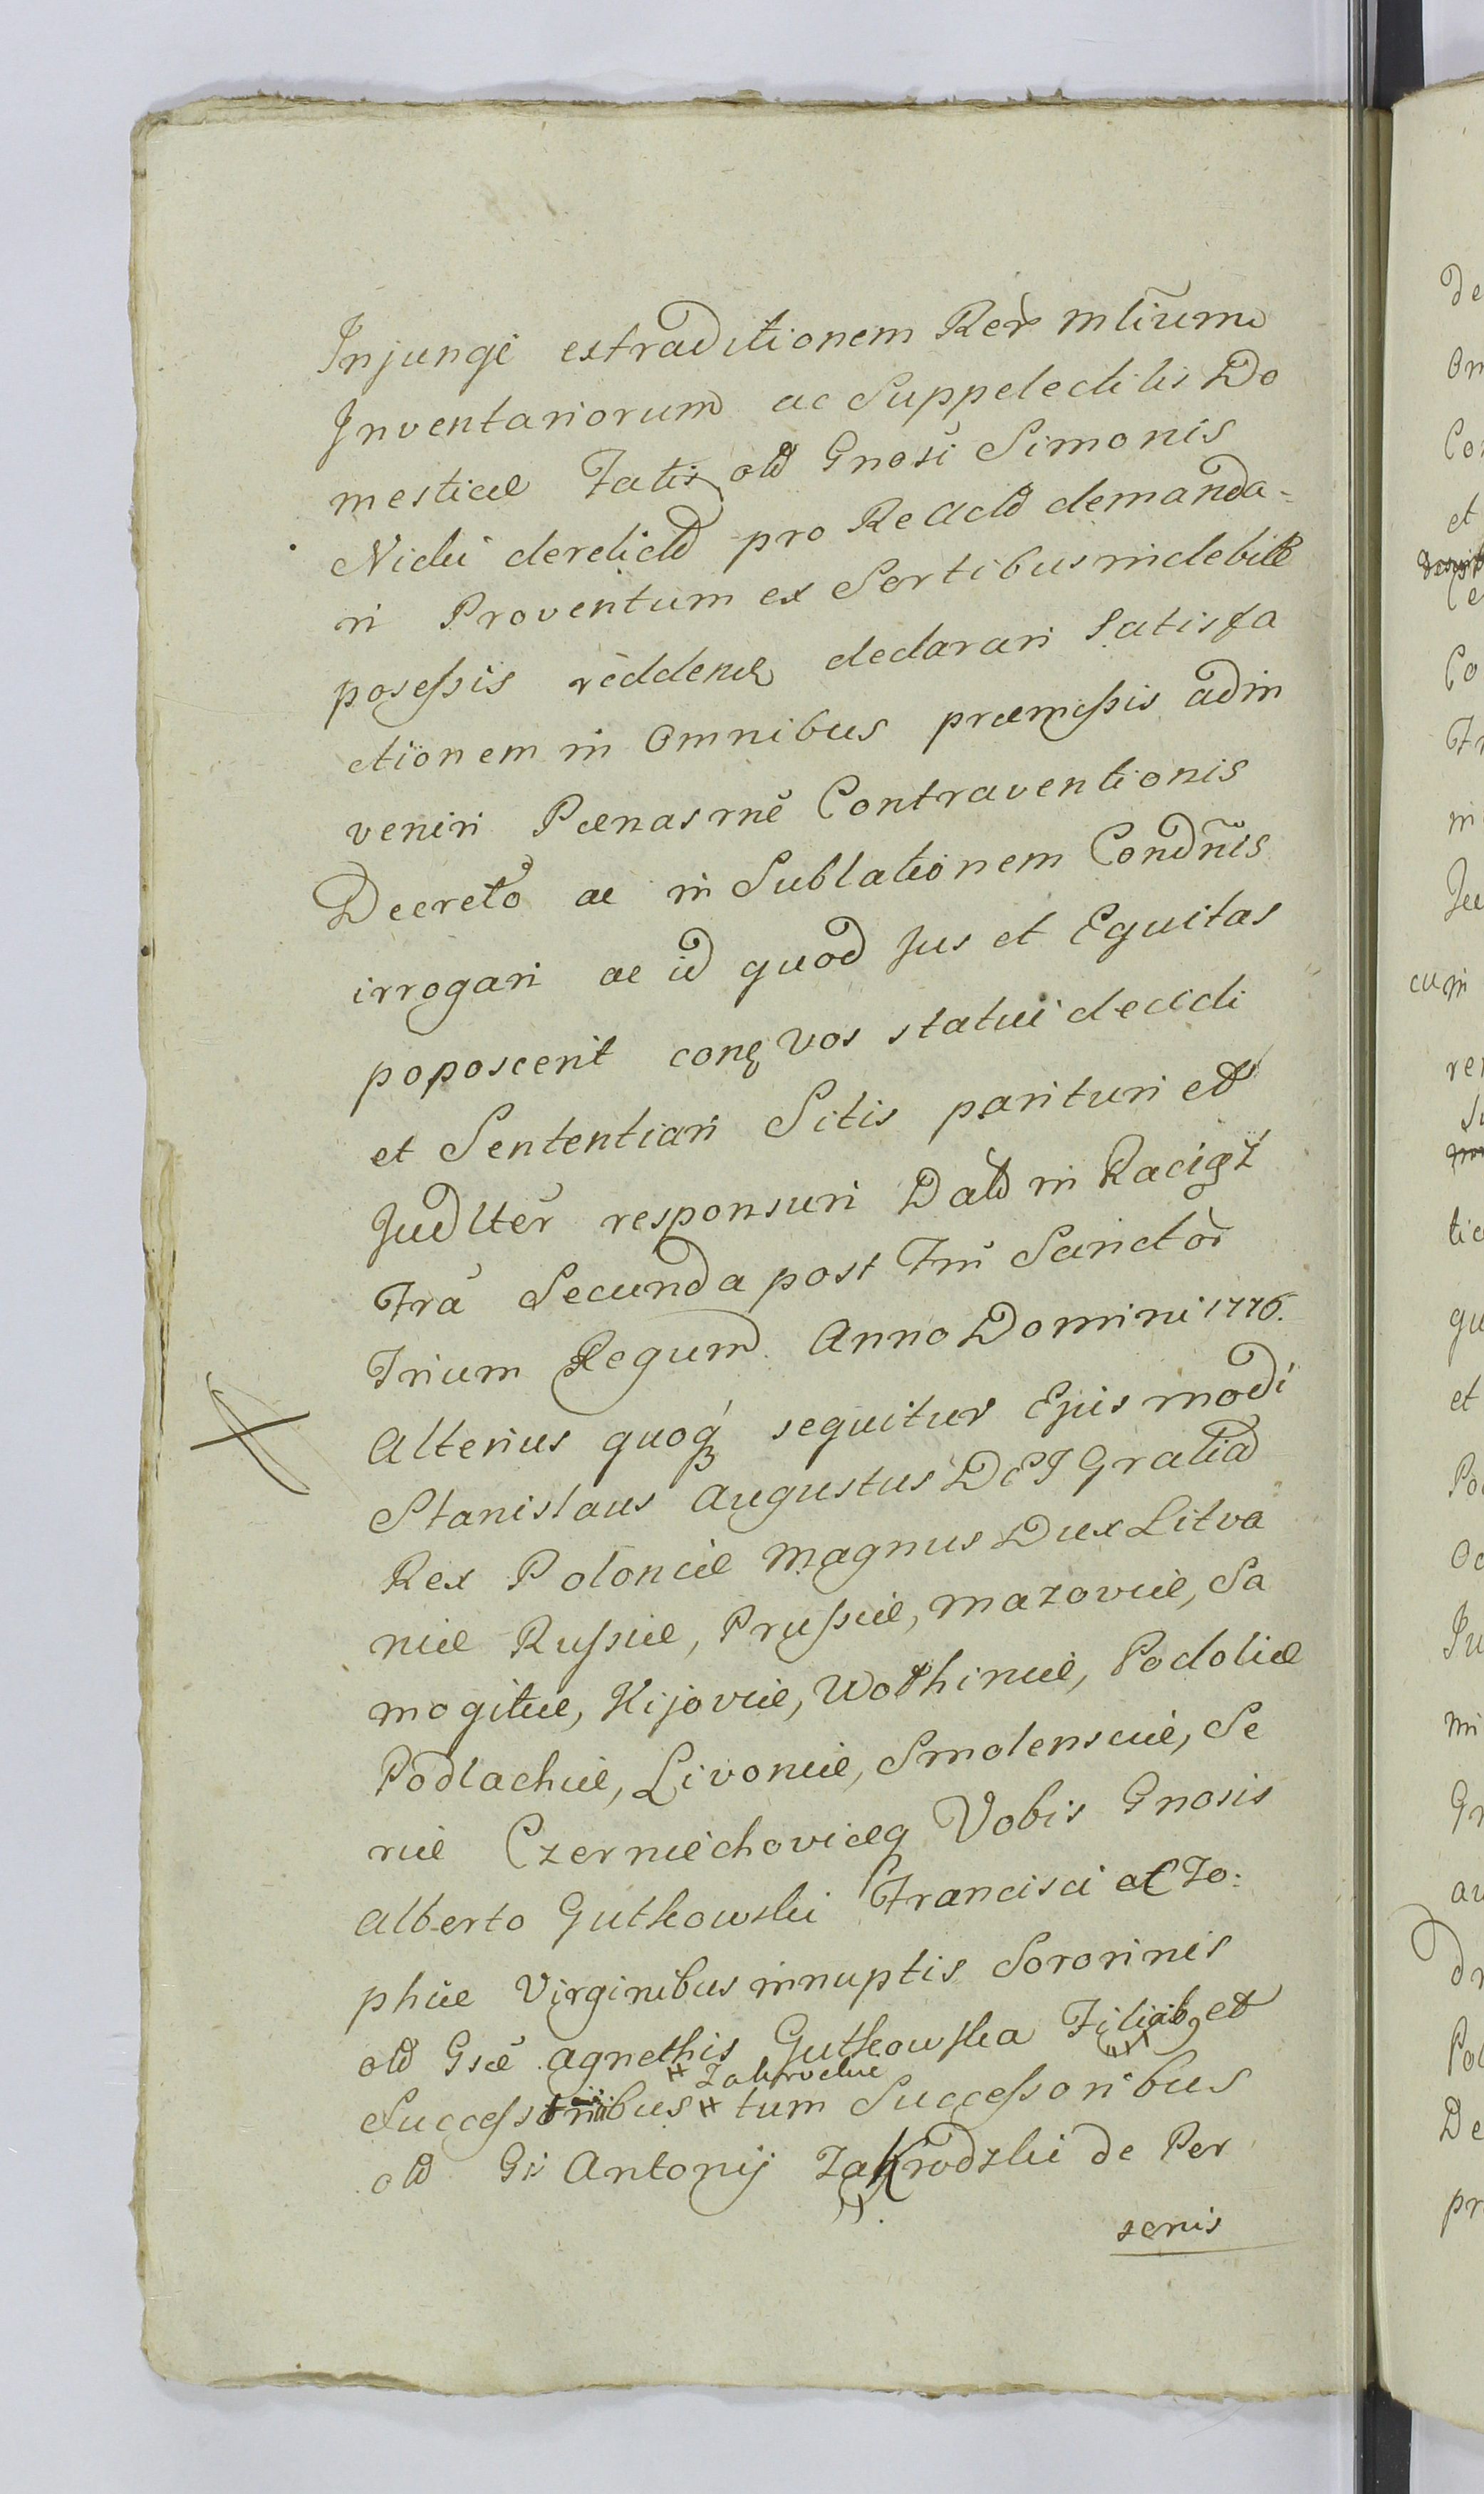 Injungi extraditionem Rer mlium
Inventariorum ac Suppeledilis Do
mesticæ Fatis old Gnosi Simonis
Nicki derelictd pro Re actd demanda-
ri Proventum ex Sortibus indebite
poseſsis reddend declarari Satisfa
ctionem in Omnibus præmiſsis adin
veniri Pænas rnē Contraventionis
Decreto ac in Sublationem Condnis
irrogari ac id quod Jus et Equitas
poposcerit conq vos statui decidi
et Sententiari Sitis parituri et
Judlter responsuri Datd in Raciąż
Fra Secunda post Fm Sanctor
Trium Regum Anno Domini 1776.
Alterius quoq sequitur Ejusmodi
Stanislaus Augustus DEI Gratia
Rex Poloniæ Magnus Dux Litva
niæ Ruſsiæ, Pruſsiæ, Mazoviæ, Sa
mogitiæ, Kijoviæ, Wolhiniæ, Podoliæ
Podlachiæ, Livoniæ, Smolensciæ, Se
riæ Czerniechoviæq Vobis Gnosis
Alberto Gutkowski Francisci et Zo:
phiæ Virginibus innuptis Sororinis
old Gsæ Agnethis Gutkowska Filiab et
# Zakrockie
Succeſsoribus # tum Succeſsoribus
old Gsi Antonij Zakrodzki de Per
zenis
de
Om
Con
et
Ce
Co
Fr
m
Ju
cum
rer
Su
tic
qu
et
Po
Oc
Ju
mi
Gn
au
dr
Pol
De
pr